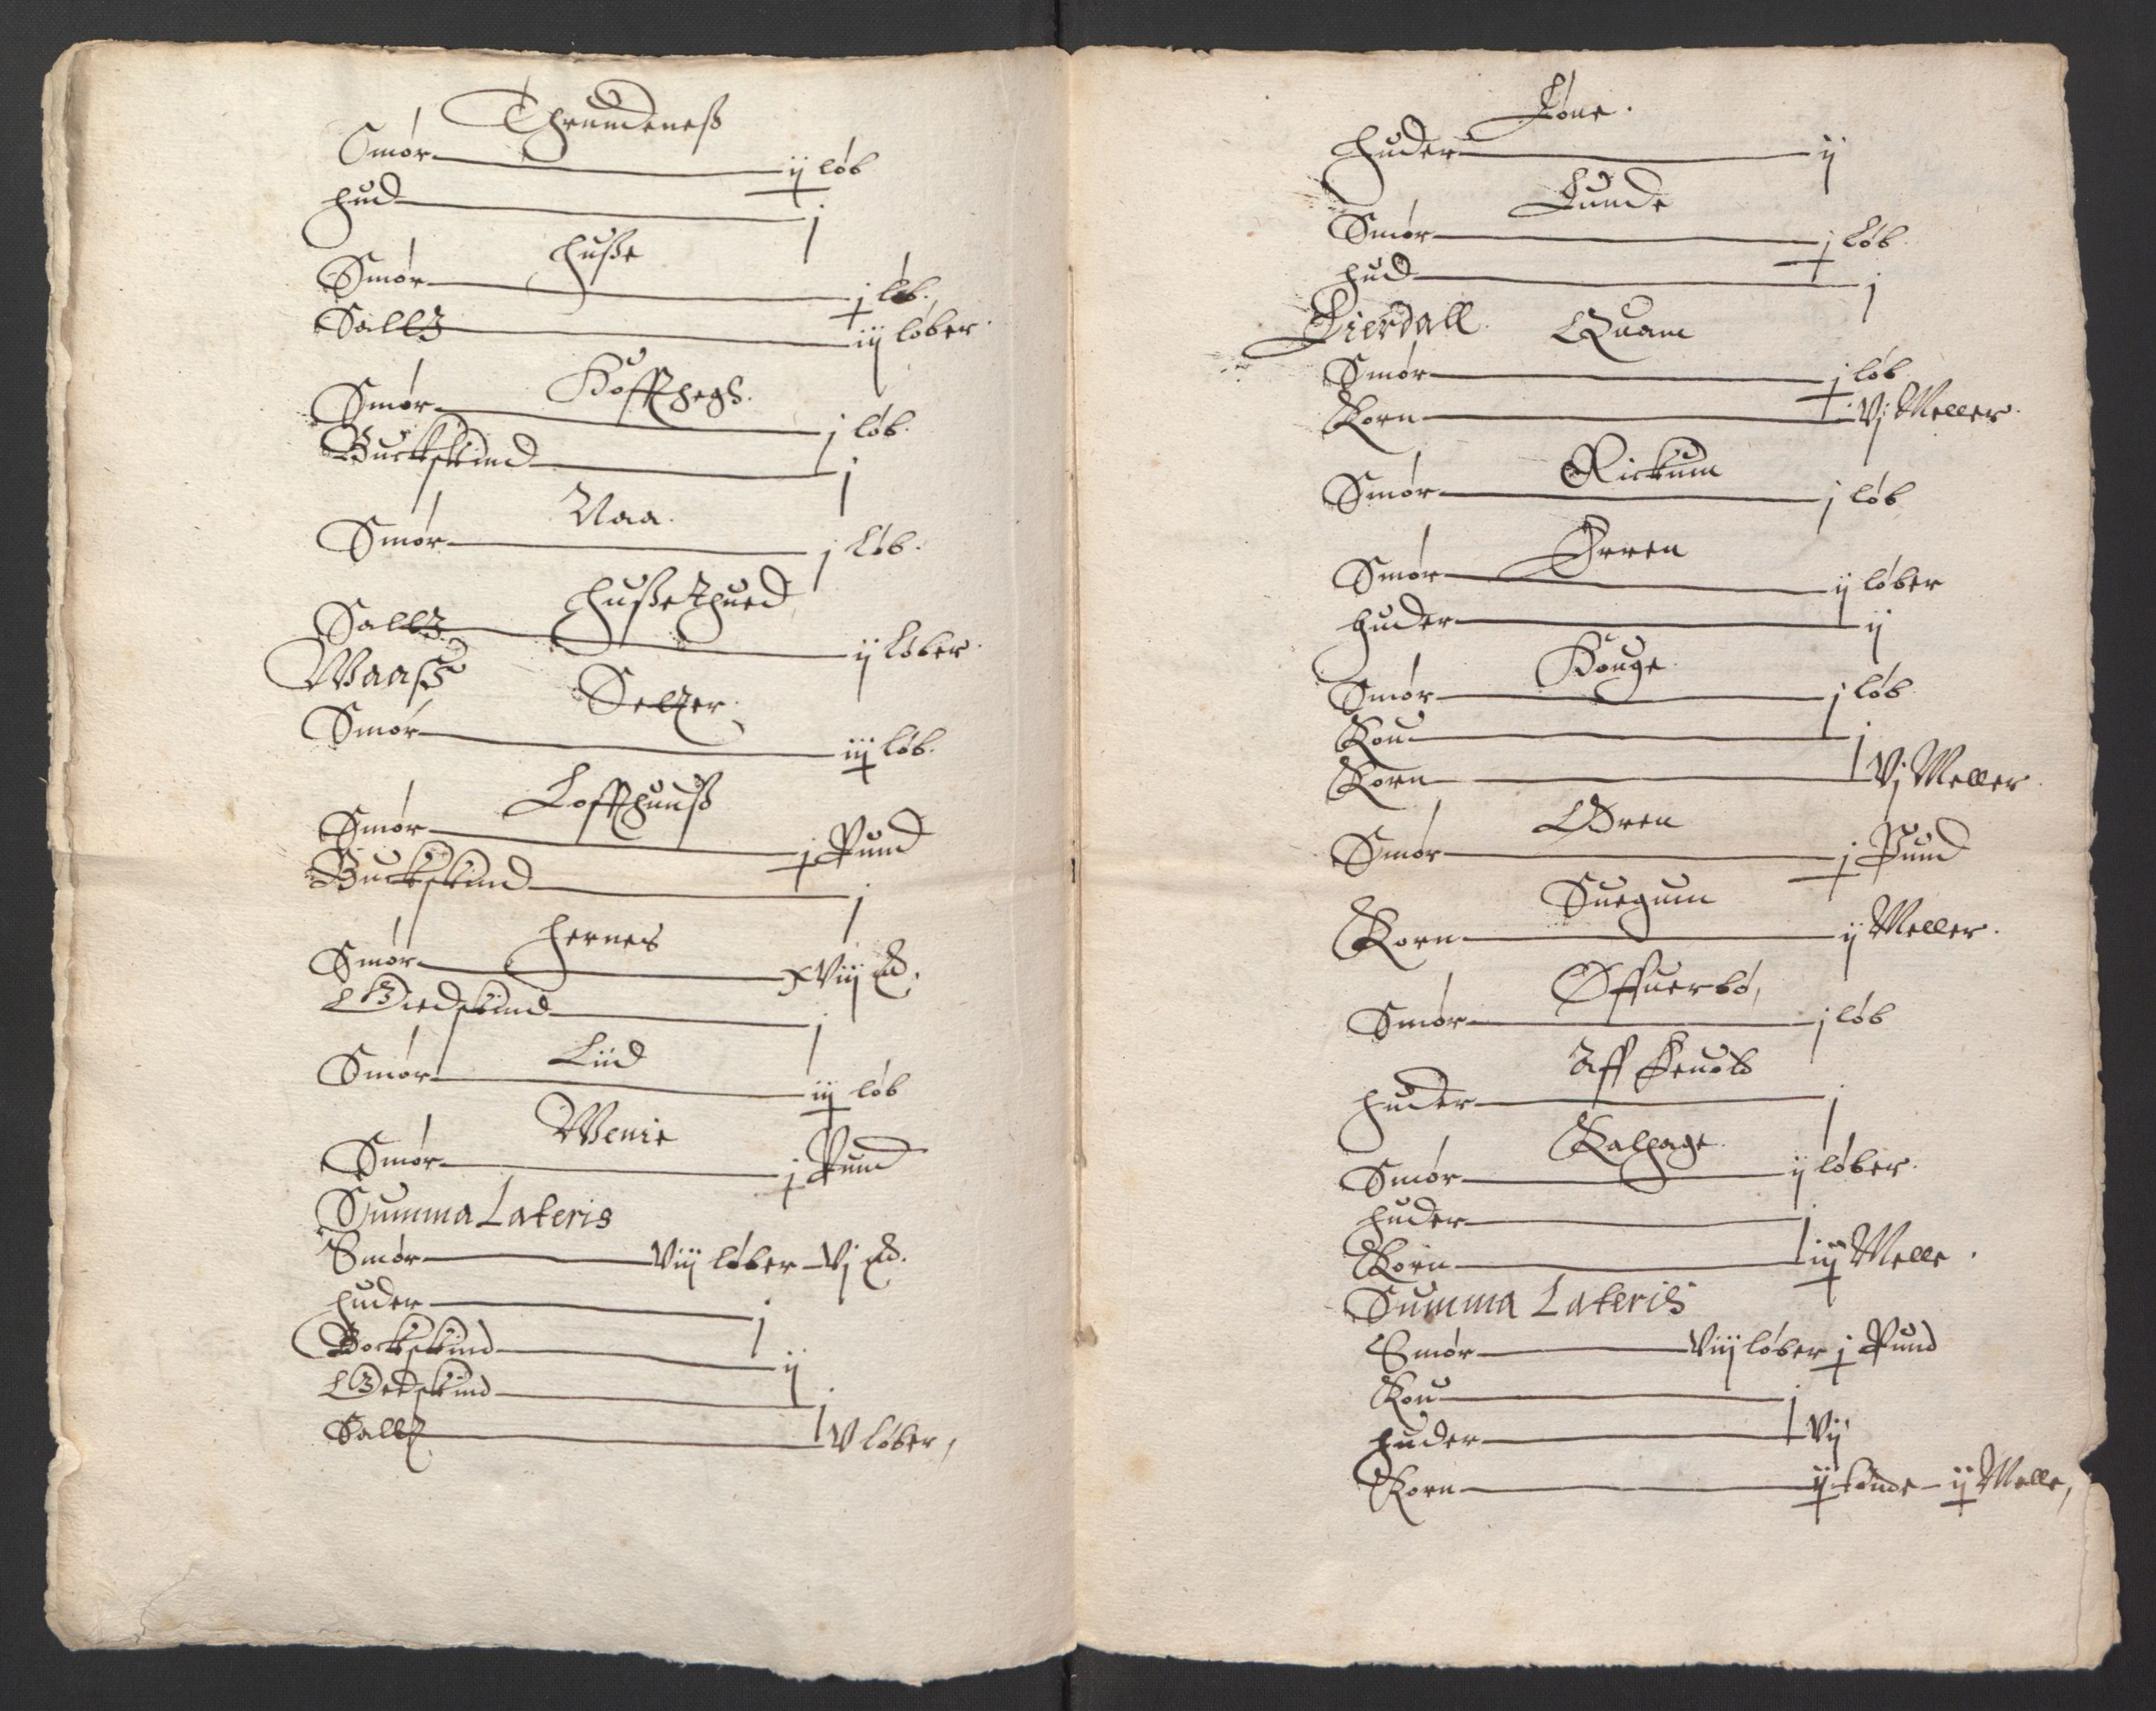 Thrundeneß
Smør ij løb
hud j
Huße
Smør j løb.
Salltz iij løber.
Koffthegh.
Smør j løb.
Buckskind j
Naa.
Smør j løb.
Hußethued
Salltz ij løber.
Waaß
Seltzer.
Smør iij løb.
Loffthuuß
Smør j Pund
Buckskind j
Hernes
Smør xviij
Giedskind j
Liid
Smør iij løb
Wenie
Smør j Pund
Summa Lateris
Smør viij løber vj
huder j
Bockskind ij
Gedskind j
Salltz v løber,
Løne.
Huder ij
Lunde
Smør j løb.
hud j
Dierdall.
Quam
Smør j løb
Korn vj Meller.
Rickum
Smør j løb
Ørren
Smør ij løber
huder ij
Houge.
Smør j løb
Kou j
Korn vj Meller.
Øren
Smør j Pund
Suegum
Korn ij Meller.
Øffuerbø,
Smør j løb
Aff
huder j
Kalhage.
Smør ij løber.
huder j
Korn iij Melle.
Summa Lateris
Smør viij løber j Pund
Kou j
huder vij
Korn ij tønde ij Melle,